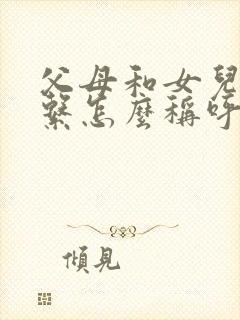 父母和女兒
繫怎麼稱呼
傾見